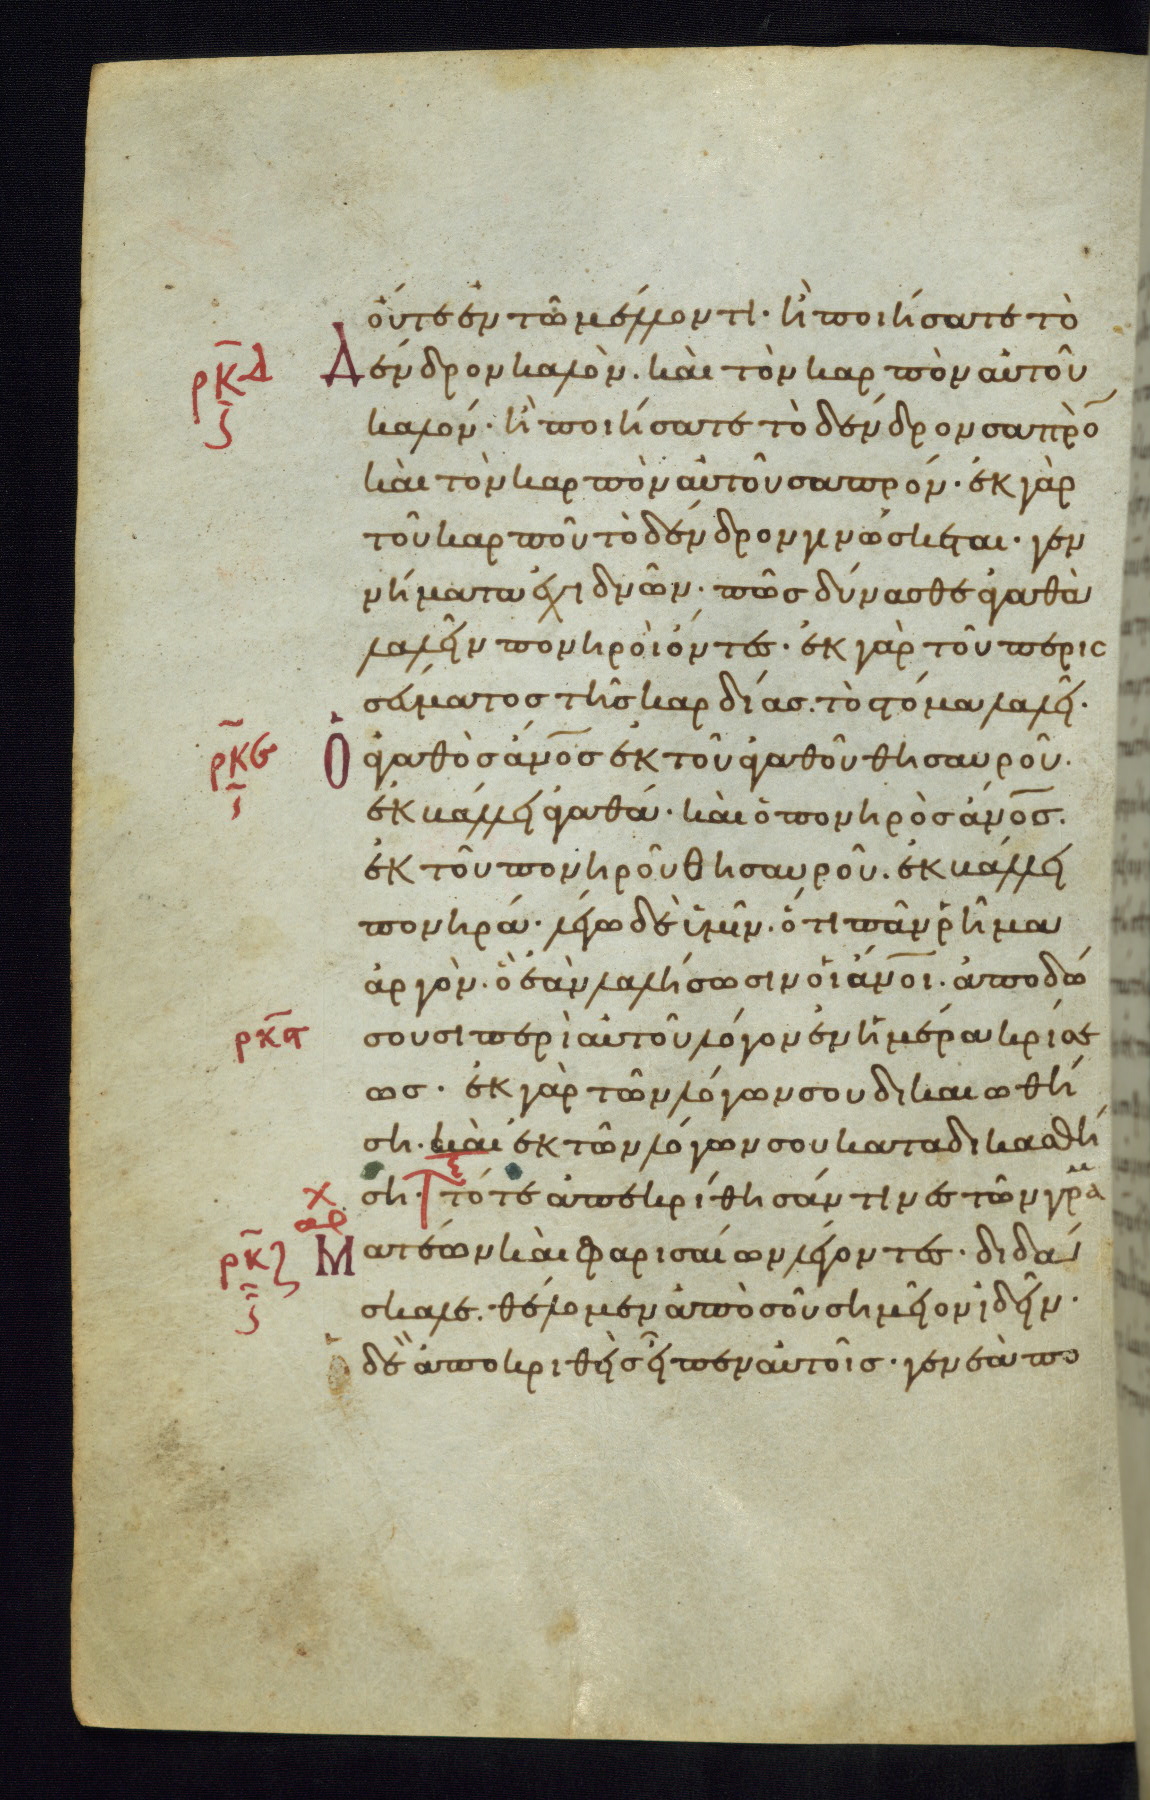 οὔτε ἐν τῶ μέλλοντι · ἢ ποιήσατε τὸ
ρκδ ζ Δένδρον καλὸν . καὶ τὸν καρπὸν αὐτοῦ
καλόν · ἢ ποιήσατε τὸ δένδρον σαπρὸ̅
καὶ τὸν καρπὸν αὐτοῦ σαπρόν · ἐκ γὰρ
τοῦ καρποῦ τὸ δένδρον γινώσκεται · γεν
νήματα ἐχιδνῶν · πῶς δύνασθε ἀγαθὰ
λαλεῖν πονηροὶ ὄντες · ἐκ γὰρ τοῦ περισ
σεύματος τῆς καρδίας . τὸ στόμα λαλεῖ ·
ρκε ι Ὁ ἀγαθὸς ἄν̅ο̅ς ἐκ τοῦ ἀγαθοῦ θησαυροῦ .
ἐκβάλλει ἀγαθά · καὶ ὁ πονηρὸς ἄν̅ο̅ς .
ἐκ τοῦ πονηροῦ θησαυροῦ . ἐκβάλλει
πονηρά · λέγω δὲ ὑμῖν · ὅτι πᾶν ῥῆμα
ἀργὸν · ὃ ἐὰν λαλήσωσιν οἱ ἄν̅ο̅ι · ἀποδώ
ρκϛ σουσι περὶ αὐτοῦ λόγον ἐν ἡμέρα κρίσε
ως · ἐκ γὰρ τῶν λόγων σου δικαιωθή
ση · καὶ ἐκ τῶν λόγων σου καταδικασθή
ση · τότε ἀπεκρίθησάν τινες τῶν γραμ
αρχ ρκζ ζ Ματέων καὶ Φαρισαίων λέγοντες · διδά
σκαλε · θέλομεν ἀπὸ σοῦ σημεῖον ἰδεῖν ·
ὁ δὲ ἀποκριθεὶς εἶπεν αὐτοῖς · γενεὰ πο